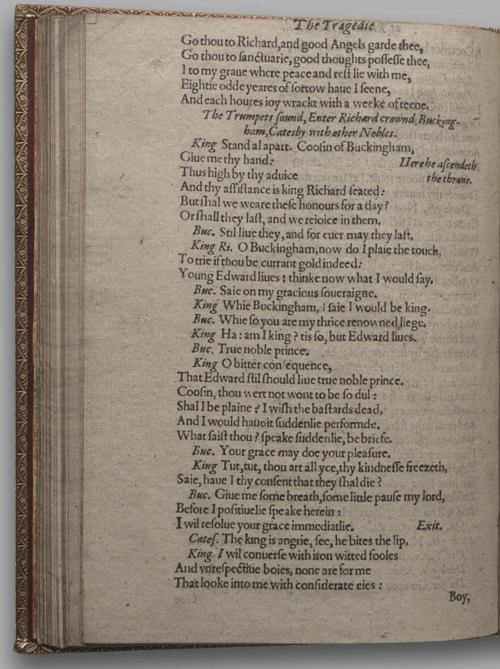 The Tragedie
Go thou to Richard, and good Angels garde thee,
Go thou to sanctuarie, good thoughts possesse thee,
I to my graue where peace and rest lie with me,
Eightie odde yeares of sorrow haue I seene,
And each houres ioy wrackt with a weeke of teene.
The Trumpets sound, Enter Richard crownd, Bucking-
ham, Catesby with other Nobles.
King Stand al apart. Coosin of Buckingham,
Giue me thy hand: Here he ascendeth
Thus high by thy aduice the throne.
And thy assistance is king Richard seated:
But shal we weare these honours for a day?
Or shall they last, and we reioice in them.
Buc. Stil liue they, and for euer may they last,
King Ri. O Buckingham, now do I plaie the touch,
To trie if thou be currant gold indeed:
Young Edward liues: thinke now what I would say.
Buc. Saie on my gracious soueraigne.
King Whie Buckingham, I saie I would be king.
Buc. Whie so you are my thrice renowned liege.
King Ha: am I king? tis so, but Edward liues.
Buc. True noble prince.
King O bitter consequence,
That Edward stil should liue true noble prince.
Coosin, thou wert not wont to be so dul:
Shal I be plaine? I wish the bastards dead,
And I would haue it suddenlie performde.
What saist thou? speake suddenlie, be briefe.
Buc. Your grace may doe your pleasure.
King Tut, tut, thou art all yce, thy kindnesse freezeth,
Saie, haue I thy consent that they shal die?
Buc. Giue me some breath, some little pause my lord,
Before I positiuelie speake herein:
I wil resolue your grace immediatlie. Exit.
Catef. The king is angrie, see, he bites the lip.
King I wil conuerse with iron witted fooles
And vnrespectiue boies, none are for me
That looke into me with considerate eies:
Boy,